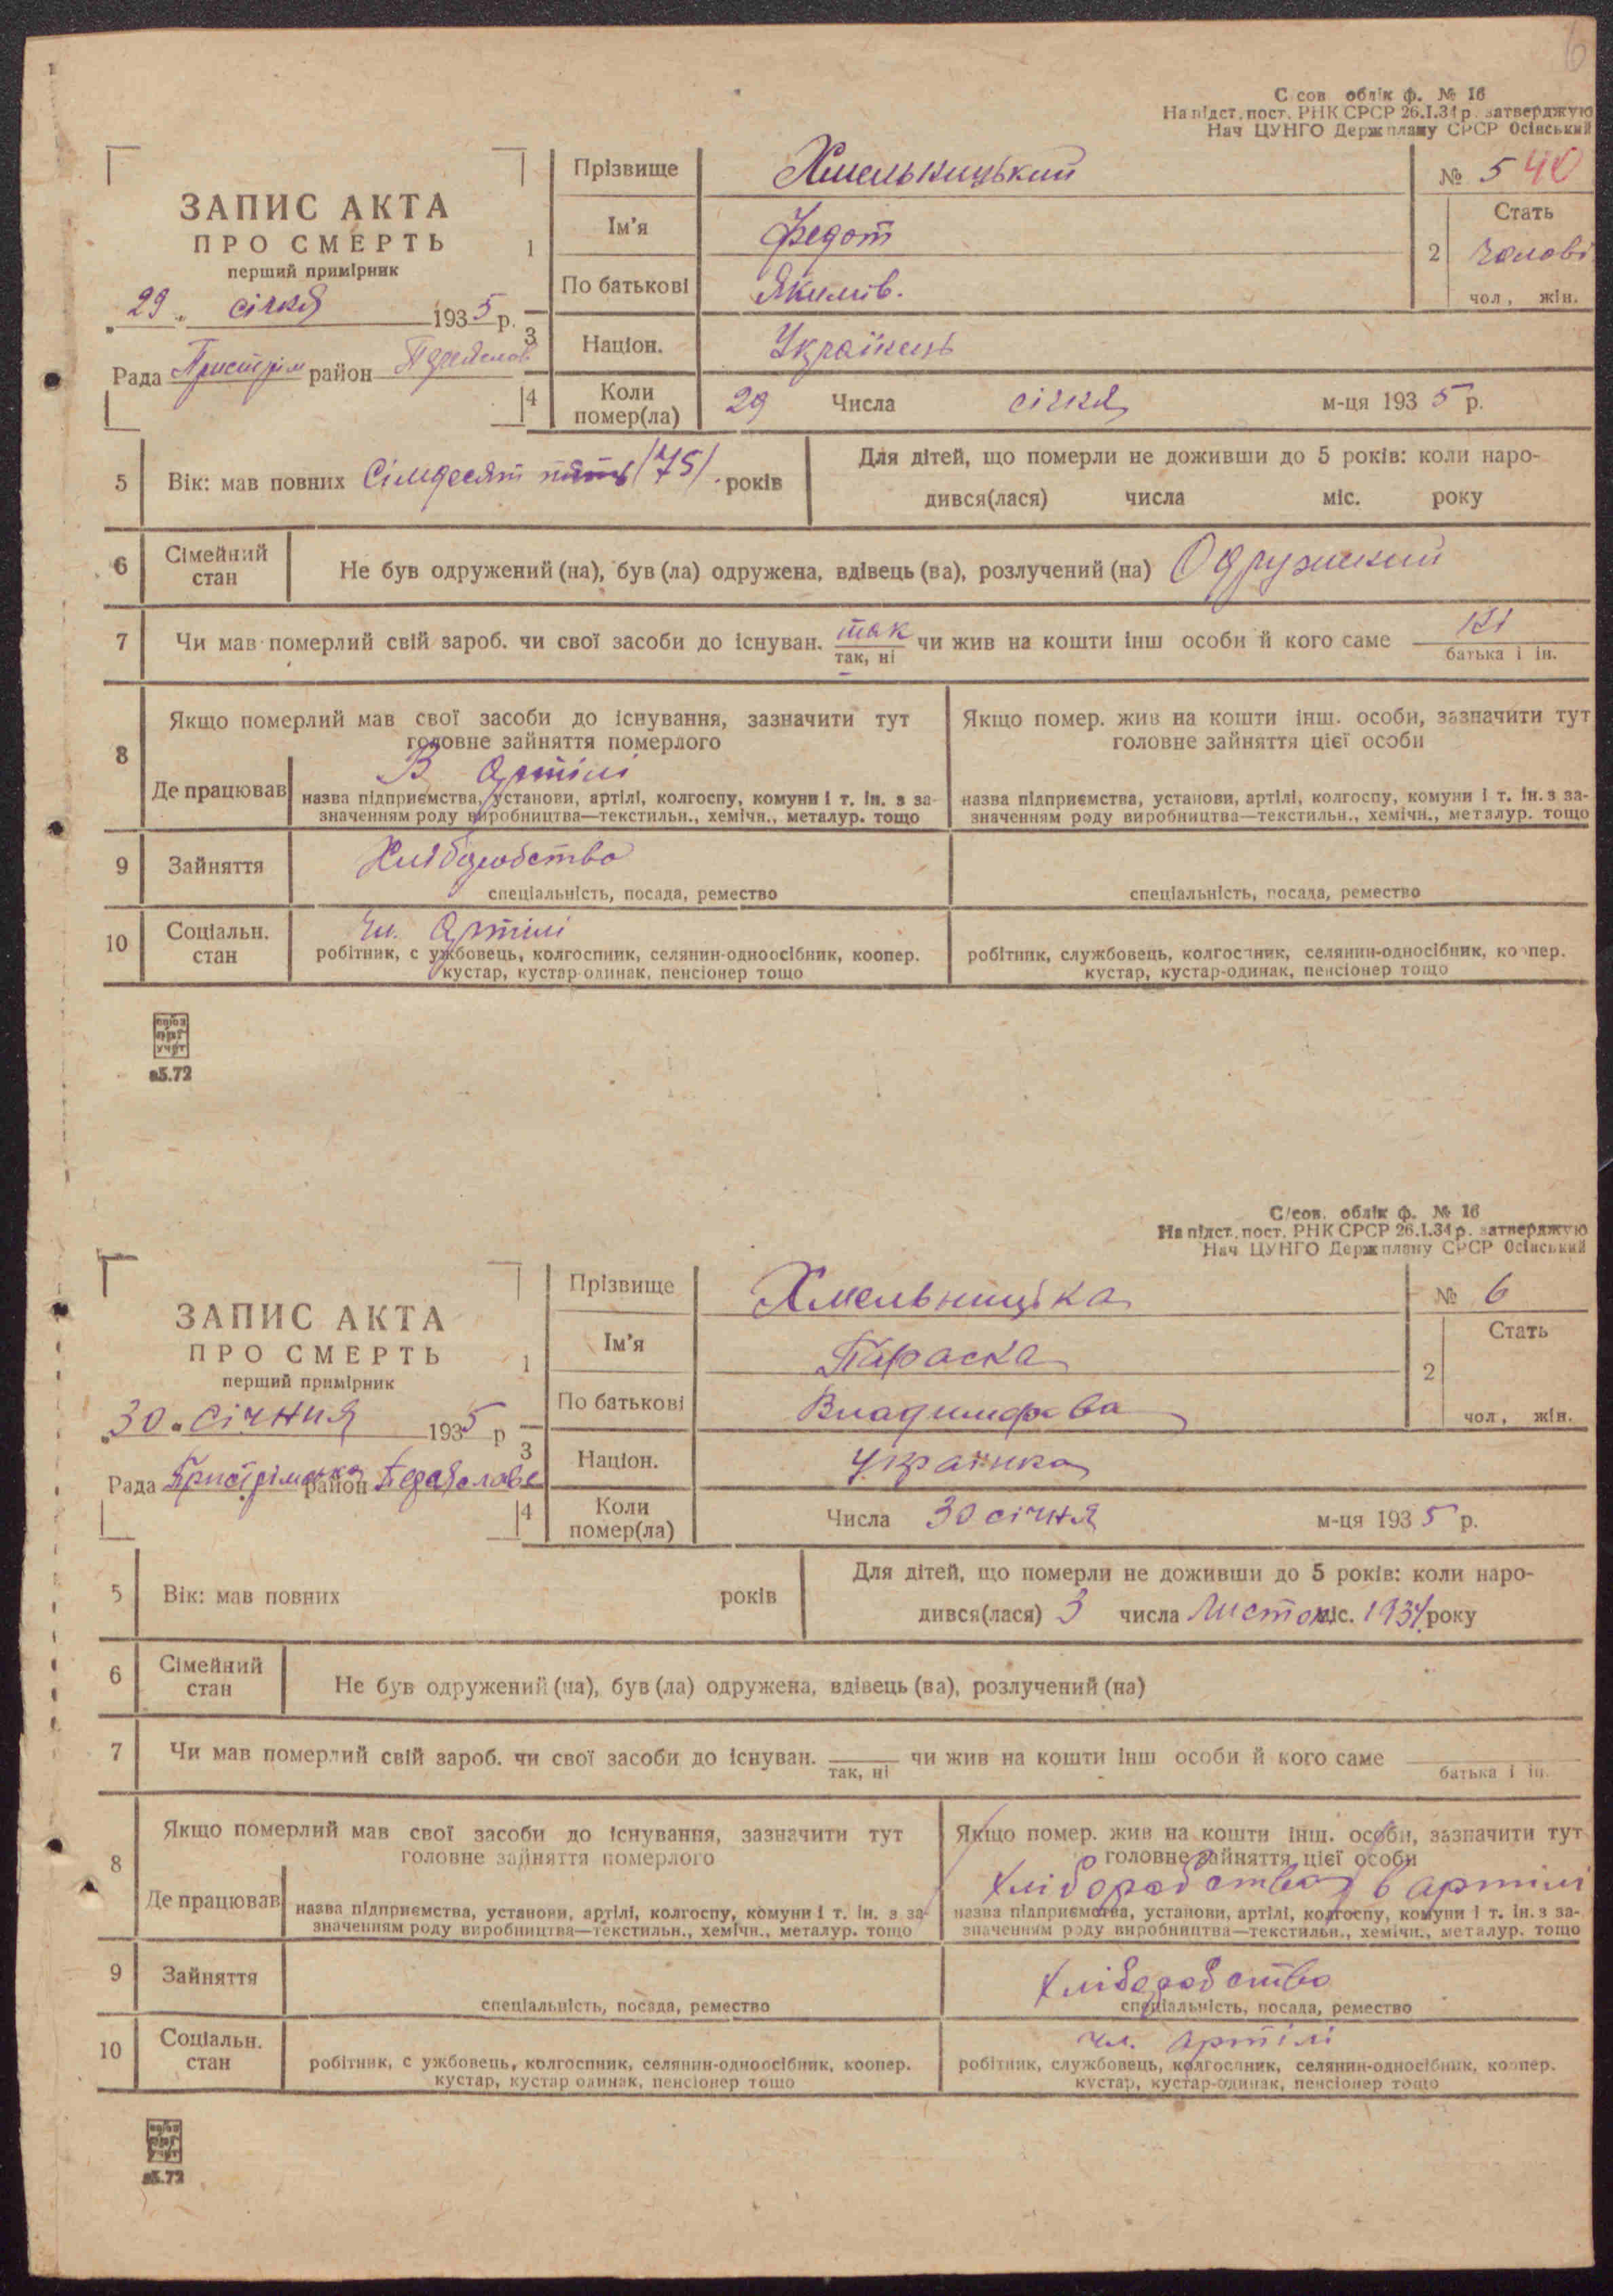 6
С сов облік ф. № 16
На підст. пост. РНК СРСР 26.І.34 р. затверджую
Нач ЦУНГО Держплану СРСР Осінський
ЗАПИС АКТА
ПРО СМЕРТЬ
перший примірник
29 січня 1935 р.
Рада район
1 Прізвище Хмельницький
Ім'я Федот
По батькові Якимів.
№ 5 40
2 Стать
чолові
чол, жін.
3 Націон. Українець
4 Коли помер(ла) 29 Числа січня м-ця 1935 р.
5 Вік: мав повних Сімдесят пять /75/. років
Для дітей, що померли не доживши до 5 років: коли наро-
дився(лася) числа міс. року
6 Сімейний стан Не був одружений (на), був (ла) одружена, вдівець (ва), розлучений (на) Одружений
7 Чи мав померлий свій зароб. чи свої засоби до існуван. так чи жив на кошти інш особи й кого саме ні
так, ні батька і ін.
8 Якщо померлий мав свої засоби до існування, зазначити тут
головне зайняття померлого
Де працював В артілі
назва підприємства, установи, артілі, колгоспу, комуни і т. ін. з за-
значенням роду виробництва—текстильн., хемічн., металур. тощо
Якщо помер. жив на кошти інш. особи, зазначити тут
головне зайняття цієї особи
назва підприємства, установи, артілі, колгоспу, комуни і т. ін. з за-
значенням роду виробництва—текстильн., хемічн., металур. тощо
9 Зайняття Хліборобство
спеціальність, посада, ремество
спеціальність, посада, ремество
10 Соціальн. стан Чл. Артілі
робітник, с ужбовець, колгоспник, селянин-одноосібник, коопер.
кустар, кустар-одинак, пенсіонер тощо
робітник, службовець, колгоспник, селянин-односібник, коопер.
кустар, кустар-одинак, пенсіонер тощо
а5.72
С/сов. облік ф. № 16
На підст. пост. РНК СРСР 26.І.34 р. затверджую
Нач ЦУНГО Держплану СРСР Осінський
ЗАПИС АКТА
ПРО СМЕРТЬ
перший примірник
30 січня 1935 р
Рада Пристрімська район
1 Прізвище Хмельницька
Ім'я Параска
По батькові Владимирова
№ 6
2 Стать
чол, жін.
3 Націон. Українка
4 Коли помер(ла) Числа 30 січня м-ця 1935 р.
5 Вік: мав повних років
Для дітей, що померли не доживши до 5 років: коли наро-
дився(лася) 3 числа Листоп міс. 1934 року
6 Сімейний стан Не був одружений (на), був (ла) одружена, вдівець (ва), розлучений (на)
7 Чи мав померлий свій зароб. чи свої засоби до існуван. чи жив на кошти інш особи й кого саме
так, ні батька і ін.
8 Якщо померлий мав свої засоби до існування, зазначити тут
головне зайняття померлого
Де працював
назва підприємства, установи, артілі, колгоспу, комуни і т. ін. з за-
значенням роду виробництва—текстильн., хемічн., металур. тощо
Якщо помер. жив на кошти інш. особи, зазначити тут
головне зайняття цієї особи
Хліборобство в артілі
назва підприємства, установи, артілі, колгоспу, комуни і т. ін. з за-
значенням роду виробництва—текстильн., хемічн., металур. тощо
9 Зайняття
спеціальність, посада, ремество
Хліборобство
спеціальність, посада, ремество
10 Соціальн. стан
робітник, с ужбовець, колгоспник, селянин-одноосібник, коопер.
кустар, кустар одинак, пенсіонер тощо
чл. артілі
робітник, службовець, колгоспник, селянин-односібник, коопер.
кустар, кустар-одинак, пенсіонер тощо
а5.72